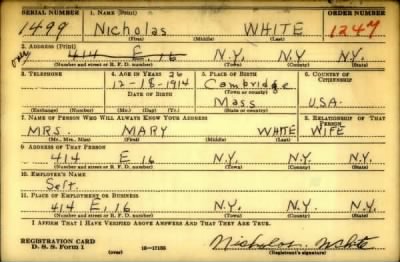 SERIAL NUMBER 1. NAME (Print) ORDER NUMBER
1499 Nicholas WHITE 1247
(First) (Middle) (Last)
2. ADDRESS (Print)
414 E. 16 N.Y. N.Y N.Y.
(Number and street or R. F. D. number) (Town) (County) (State)
3. TELEPHONE 4. AGE IN YEARS 26 5. PLACE OF BIRTH 6. COUNTRY OF
CITIZENSHIP
12-18-1914 Cambridge
DATE OF BIRTH (Town or county)
Mass U.S.A.
(Exchange) (Number) (Mo.) (Day) (Yr.) (State or country)
7. NAME OF PERSON WHO WILL ALWAYS KNOW YOUR ADDRESS 8. RELATIONSHIP OF THAT
PERSON
MRS. MARY WHITE WIFE
(Mr., Mrs., Miss) (First) (Middle) (Last)
9. ADDRESS OF THAT PERSON
414 E 16 N.Y. N.Y. N.Y.
(Number and street or R. F. D. number) (Town) (County) (State)
10. EMPLOYER'S NAME
Self.
11. PLACE OF EMPLOYMENT OR BUSINESS
414 E. 16 N.Y. N.Y. N.Y.
(Number and street or R. F. D. number) (Town) (County) (State)
I AFFIRM THAT I HAVE VERIFIED ABOVE ANSWERS AND THAT THEY ARE TRUE.
REGISTRATION CARD
D. S. S. Form 1 (over) 16—17105 Nicholas White
(Registrant's signature)